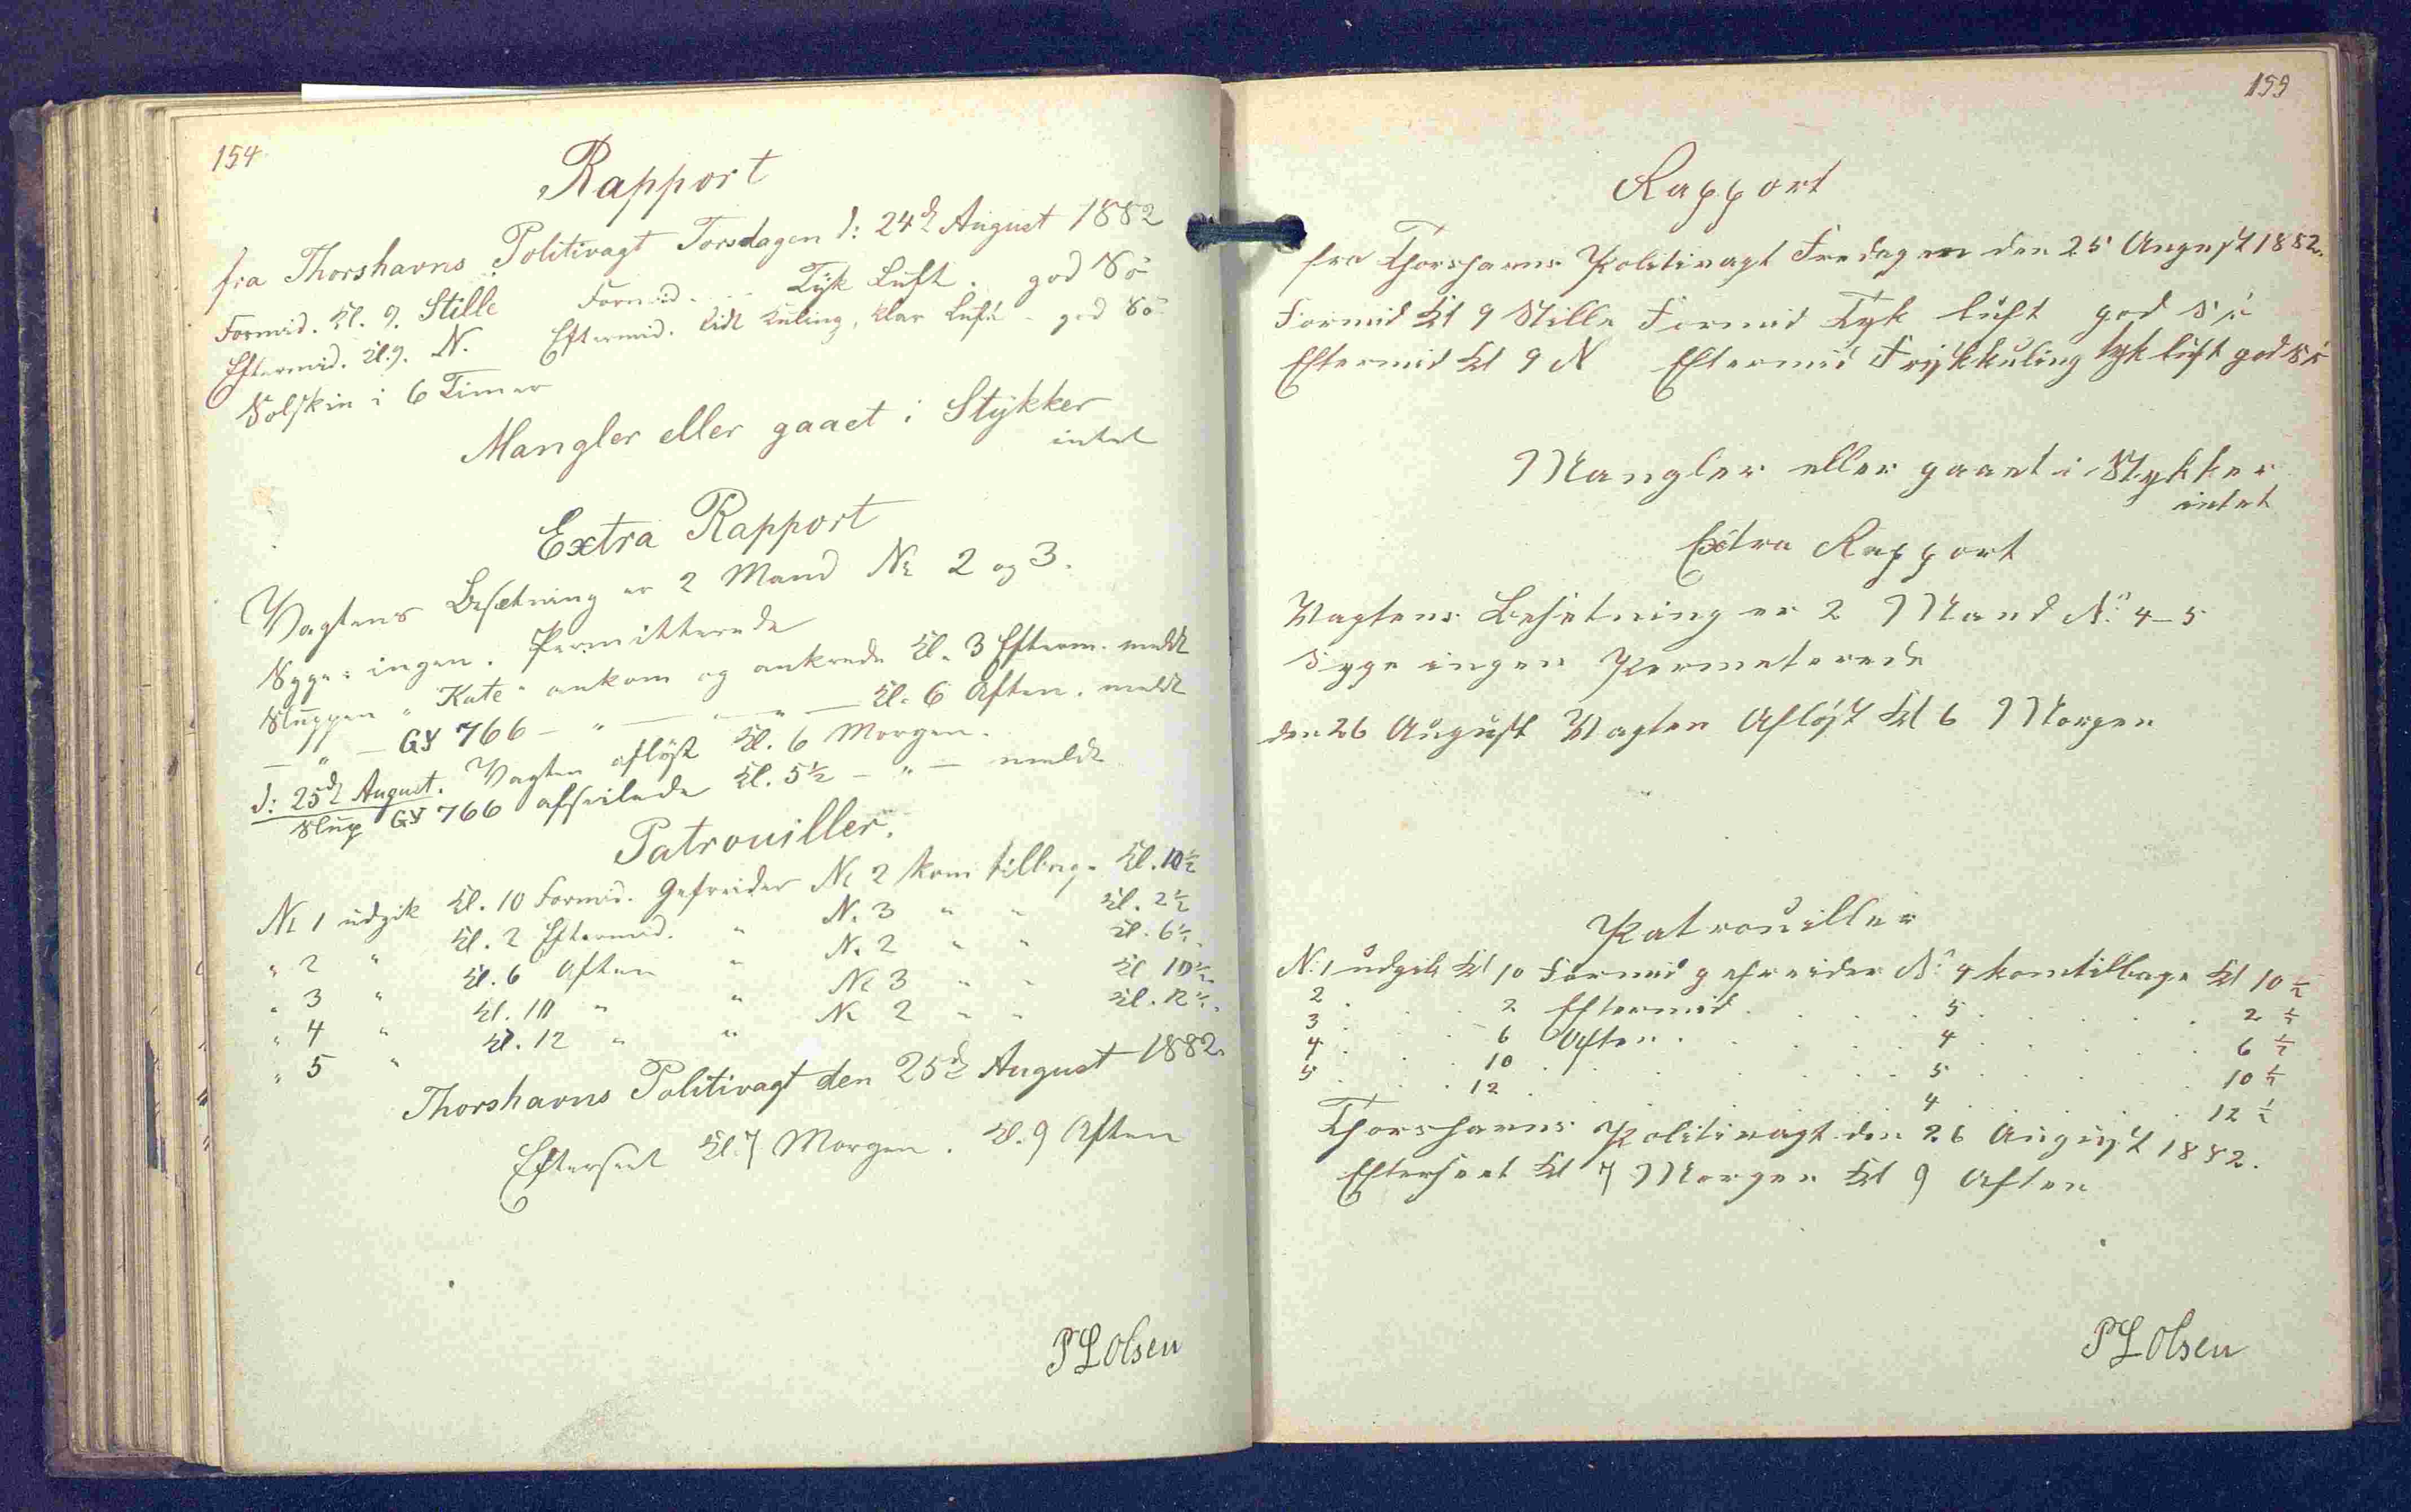 154
Rapport
fra Thorshavns Politivagt Torsdagen d: 24de August 1882
Formid. Kl. 9. Stille Formid. Tyk Luft. god Sö
Eftermid. Kl. 9. N. Eftermid. lidt Kuling, klar Luft - god Sö
Solskin i 6 Timer
Mangler eller gaaet i Stykker
intet
Extra Rapport
Vagtens Besætning er 2 Mand No 2 og 3.
Syge: ingen. Permitterede
Sluppen "Kate" ankom og ankrede Kl. 3 Efterm. meldt
— " — GY 766 — " — " — Kl. 6 Aften. meldt
d: 25de August. Vagten aflöst Kl. 6 Morgen.
Slup GY 766 afseilede Kl. 5½ — " — meldt
Patrouiller.
No 1 udgik Kl. 10 Formid. Gefreider No 2 kom tilbage Kl. 10½
" 2 " Kl. 2 Eftermid. " No 3 " " Kl. 2½
" 3 " Kl. 6 Aften " No 2 " " Kl. 6½
" 4 " Kl. 10 " " No 3 " " Kl 10½
" 5 " Kl. 12 " " No 2 " " Kl. 12½
Thorshavns Politivagt den 25de August 1882.
Efterseet Kl. 7 Morgen. Kl. 9 Aften
P L Olsen
155
Rapport
fra Thorshavns Politivagt Fredagen den 25 August 1882.
Formid Kl 9 Stille Formid Tyk luft god Sö
Eftermid Kl 9 N Eftermid Friskkuling tyk luft god Sö
Mangler eller gaaet i Stykker
intet
Extra Rapport
Vagtens Besetning er 2 Mand No. 4-5
Syge ingen Permeterede
den 26 August Vagten Aflöst Kl 6 Morgen
Patrouiller
No. 1 udgik Kl 10 Formid gefreider No. 4 kom tilbage Kl 10½
2 . . . 2 Eftermid . . . 5 . . . 2½
3 . . . 6 Aften . . . 4 . . . 6½
4 . . . 10 . . . 5 . . . 10½
5 . . . 12 . . . 4 . . . 12½
Thorshavns Politivagt den 26 August 1882.
Efterseet Kl 7 Morgen Kl 9 Aften
P L Olsen